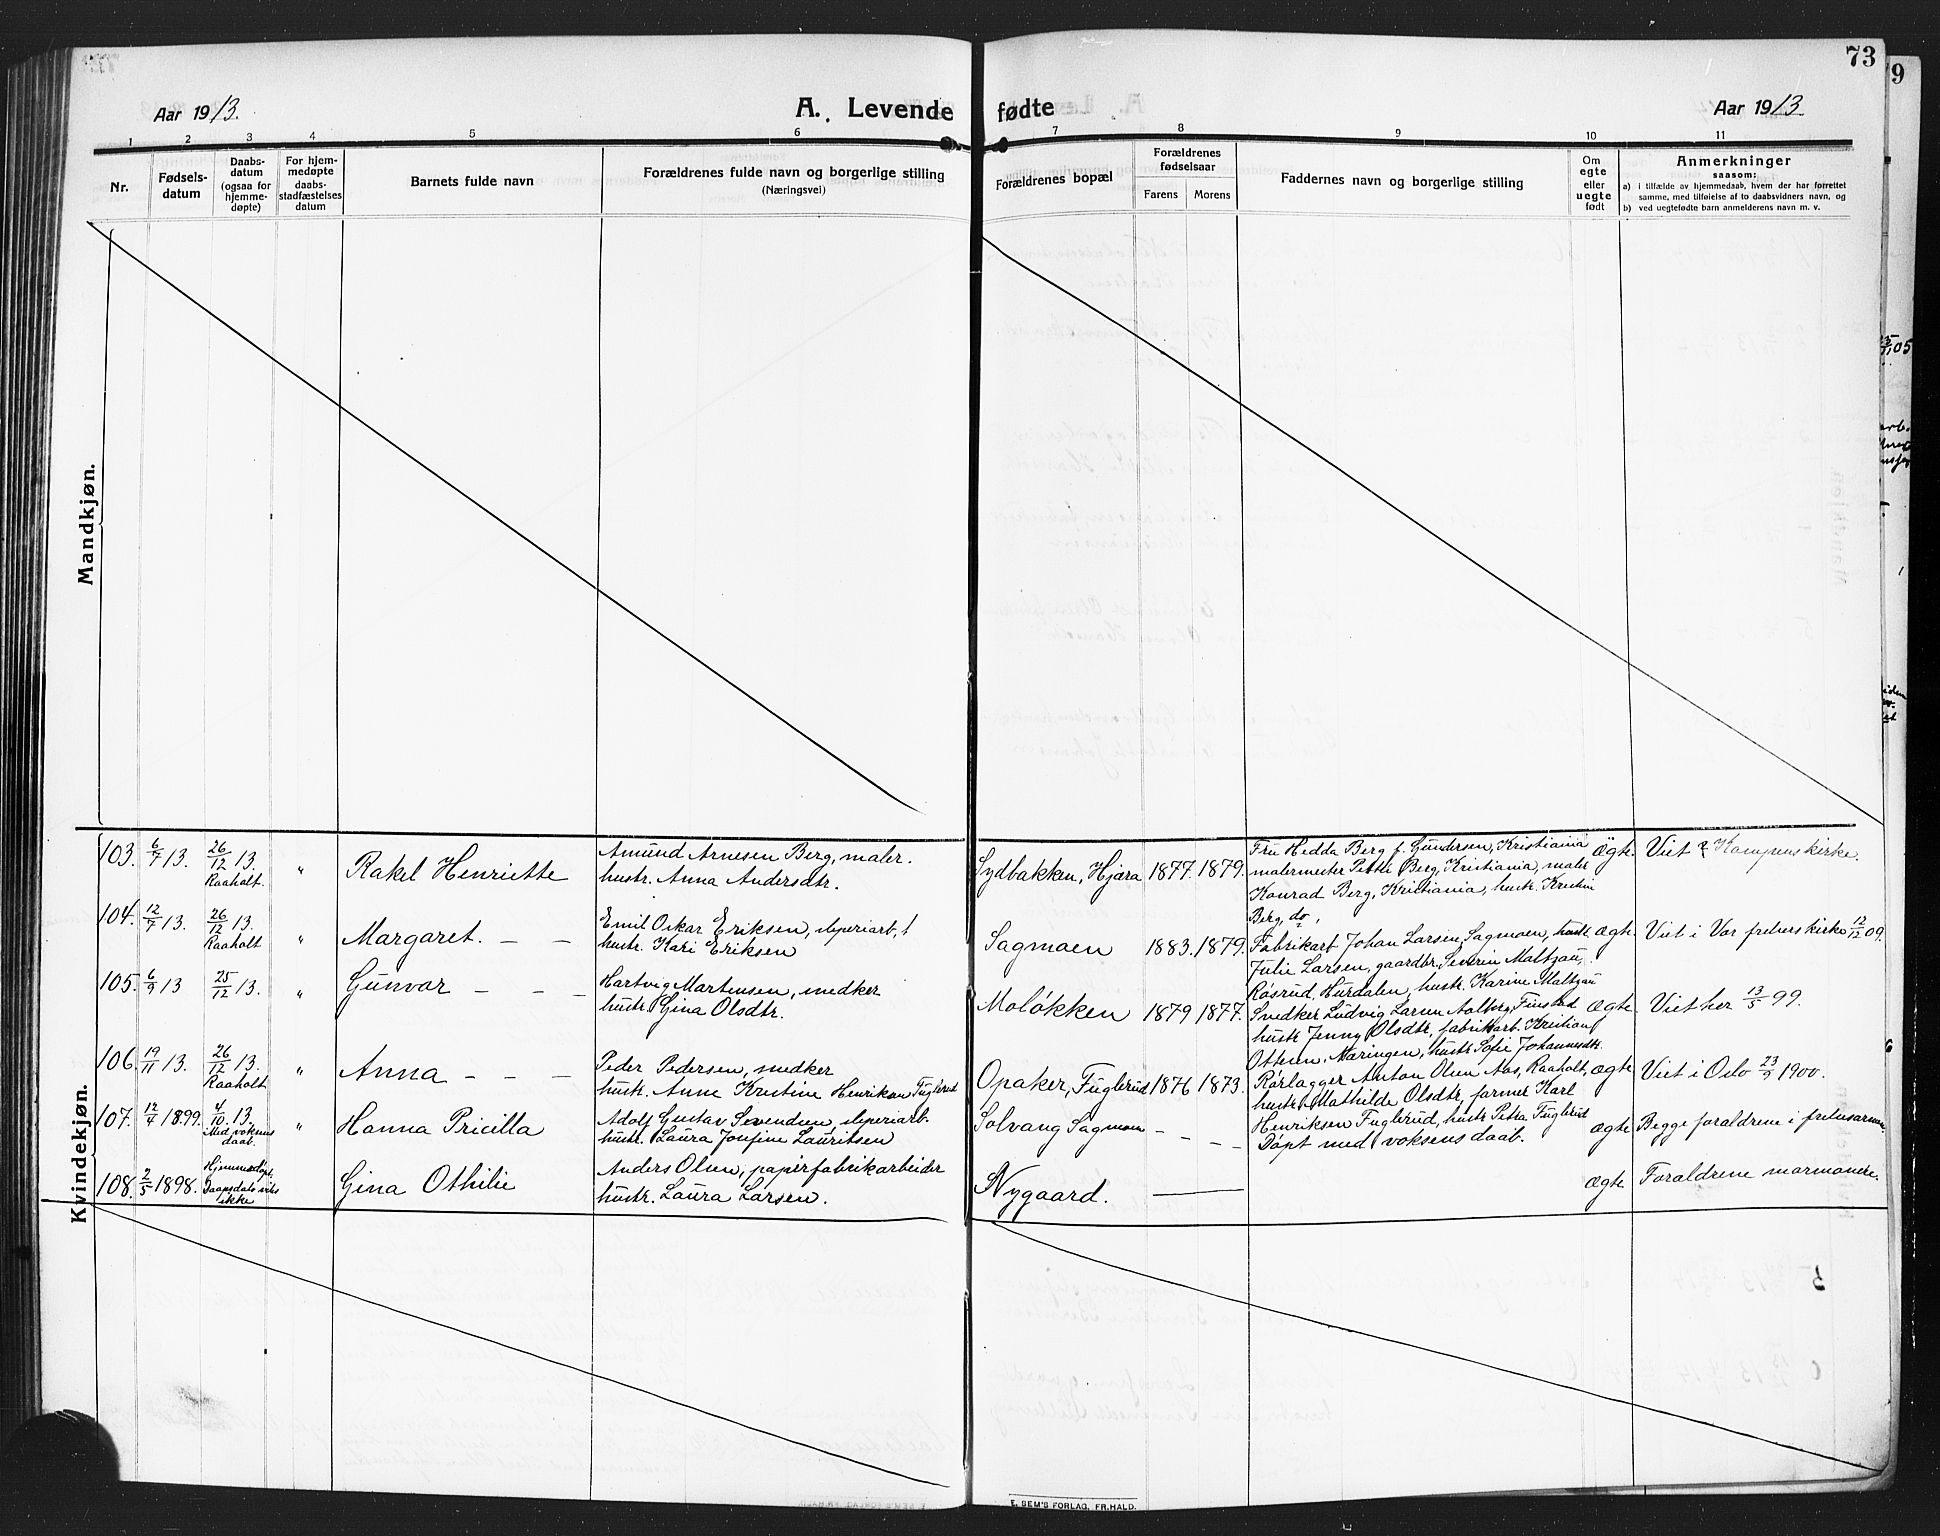 73
Aar 1913.
A. Levende fødte
Aar 1913.
1 2 3 4 5 6 7 8 9 10 11
Nr.
Fødsels-
datum
Daabs-
datum
(ogsaa for
hjemme-
døpte)
For hjem-
medøpte
daabs-
stadfæstelses
datum
Barnets fulde navn
Forældrenes fulde navn og borgerlige stilling
(Næringsvei)
Forældrenes bopæl
Forældrenes
fødselsaar
Farens Morens
Faddernes navn og borgerlige stilling
Om
egte
eller
uegte
født
Anmerkninger
saasom:
a) i tilfælde av hjemmedaab, hvem der har forrettet
samme, med tilføielse af to daabsvidners navn, og
b) ved uegtefødte barn anmelderens navn m. v.
Mandkjøn.
Kvindekjøn.
103. 6/7 13. 26/12 13. Raaholt. " Rakel Henriette
Amund Arnesen Berg, maler.
hustr. Anna Andersdtr.
Sydbakken, Hjæra 1877. 1879.
Fru Hedda Berg f. Gundersen, Kristiania
malermester Petter Berg, Kristiania, maler
Konrad Berg, Kristiania, hustr. Kristin
Berg, do,
ægte. Viet i Kampens kirke.
104. 12/7 13. 26/12 13. Raaholt " Margaret. — —
Emil Oskar Eriksen, sliperiarb,
hustr. Kari Eriksen
Sagmoen 1883. 1879.
Fabrikarb. Johan Larsen, Sagmoen, hustr.
Julie Larsen, gaardbr. Severin Maltzau,
Røsrud, Hurdalen, hustr. Karine Maltzau
ægte. Viet i Vor frelsers kirke 12/12 09.
105. 6/9 13 25/12 13. " Gunvor — — —
Hartvig Martensen, snedker
hustr. Gina Olsdtr.
Moløkken 1879 1877.
Snedker Ludvig Larsen Aalborg, Finstad
hustr. Jenny Olsdtr, fabrikarb. Kristian
Ottesen, Næringen, hustr. Sofie Johannesdtr.
ægte. Viet her 13/5 99.
106. 19/11 13. 26/12 13. Raaholt " Anna — — —
Peder Pedersen, snedker
hustr. Anne Kristine Henriksen Fuglerud
Opaker, Fuglerud 1876 1873.
Rørlægger Anton Olsen Aas, Raaholt,
hustr. Mathilde Olsdtr, former Karl
Henriksen Fuglerud, hustr. Petra Fuglerud
ægte Viet i Oslo 23/9 1900.
107. 12/4 1899. 4/10. 13. Med voksens daab. " Hanna Pricilla
Adolf Gustav Svendsen, sliperiarb.
hustr. Laura Josefine Lauritsen
Solvang Sagmoen — — — —
Døpt med voksens daab.
ægte Begge forældrene i frelsesarmen.
108. 2/5 1898. Hjemmedøpt, Daapsdato vites ikke Gina Othilie
Anders Olsen, papirfabrikarbeider
hustr. Laura Larsen.
Nygaard. ———
ægte Forældrene mormonere.
E. SEM'S FORLAG, FR.HALD.